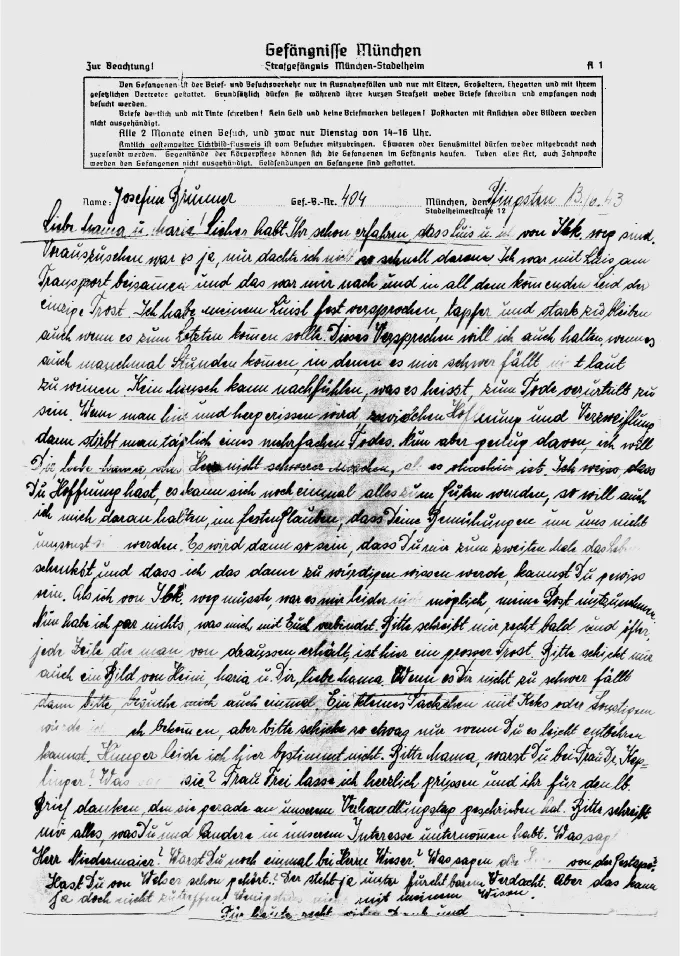 Gefängnisse München
Zur Beachtung! Strafgefängnis München-Stadelheim A 1
Den Gefangenen ist der Brief- und Besuchsverkehr nur in Ausnahmefällen und nur mit Eltern, Großeltern, Ehegatten und mit ihrem
gesetzlichen Vertreter gestattet. Grundsätzlich dürfen sie während ihrer kurzen Strafzeit weder Briefe schreiben und empfangen noch
besucht werden.
Briefe deutlich und mit Tinte schreiben! Kein Geld und keine Briefmarken beilegen! Postkarten mit Ansichten oder Bildern werden
nicht ausgehändigt.
Alle 2 Monate einen Besuch, und zwar nur Dienstag von 14-16 Uhr.
Amtlich gestempelter Lichtbild-Ausweis ist vom Besucher mitzubringen. Eßwaren oder Genußmittel dürfen weder mitgebracht noch
zugesandt werden. Gegenstände der Körperpflege können sich die Gefangenen im Gefängnis kaufen. Tuben aller Art, auch Zahnpaste
werden den Gefangenen nicht ausgehändigt. Geldsendungen an Gefangene sind gestattet.
Name: Josefine Brunner Gef.-B.-Nr. 404 München, den Pfingsten 13. 43
Stadelheimerstraße 12
Liebe Mama u. Marie! Sicher habt Ihr schon erfahren, dass Luis u. ich von Ibk. weg sind.
Vorauszusehen war es ja, nur dachte ich nicht so schnell daran. Ich war mit Luis am
Transport beisammen und das war mir nach und in all dem kommenden Leid der
einzige Trost. Ich habe meinem Luisl fest versprochen, tapfer und stark zu bleiben
auch wenn es zum Letzten kommen sollte. Dieses Versprechen will ich auch halten, wenn es
auch manchmal Stunden kommen, in denen es mir schwer fällt nicht laut
zu weinen. Kein Mensch kann nachfühlen, was es heisst, zum Tode verurteilt zu
sein. Wenn man hin und hergerissen wird zwischen Hoffnung und Verzweiflung
dann stirbt man täglich eines mehrfachen Todes. Nun aber genug davon, ich will
Dir liebe Mama, das Herz nicht schwerer machen, als es ohnehin ist. Ich weiss dass
Du Hoffnung hast, es kann sich noch einmal alles zum Guten wenden, so will auch
ich mich daran halten, im festen Glauben, dass Deine Bemühungen um uns nicht
umsonst werden. Es wird dann so sein, dass Du mir zum zweiten Male das Leben
schenkst, und dass ich das dann zu würdigen wissen werde, kannst Du gewiss
sein. Als ich von Ibk. weg musste, war es mir leider nicht möglich, meine Post mitzunehmen.
Nun habe ich gar nichts, was mich mit Euch verbindet. Bitte schreibt mir recht bald und öfter,
jede Zeile die man von draussen erhält, ist hier ein grosser Trost. Bitte schickt mir
auch ein Bild von Heini, Maria u. Dir, liebe Mama. Wenn es Dir nicht zu schwer fällt
dann bitte, besuche mich auch einmal. Ein kleines Päckchen mit Keks oder Sonstigem
würde ich bekommen, aber bitte schicke so etwas nur wenn Du es leicht entbehren
kannst. Hunger leide ich hier bestimmt nicht. Bitte Mama, warst Du bei Frau Dr. Kap-
linger? Was sie? Frau Frei lasse ich herzlich grüssen und ihr für den lb.
Brief danken, den sie gerade an unserem Verhandlungstag geschrieben hat. Bitte schreibt
mir alles, was Du und Andere in unserem Interesse unternommen habt. Was sagt
Herr Niedermaier? Warst Du noch einmal bei Herrn Wieser? Was sagen die von der Gestapo?
Hast Du von Welser schon gehört? Der steht ja unter furchtbarem Verdacht. Aber das kann
ja doch nicht zutreffen! Wenigstens nicht mit meinem Wissen.
Für heute recht vielen Dank und